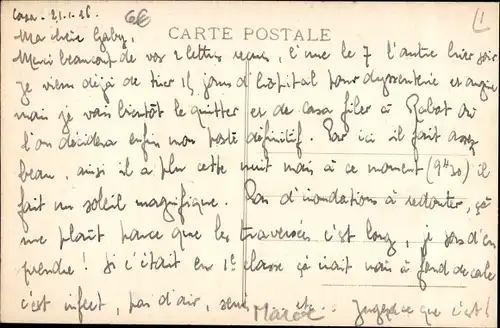 Casa. 21.1.26
6€
1
CARTE POSTALE
Ma chère Gaby,
Merci beaucoup de vos 2 lettres reçues, l'une le 7 l'autre hier soir
Je viens déjà de tirer 15 jours d'hôpital pour dysenterie et angine
mais je vais bientôt le quitter et de Casa filer à Rabat où
l'on décidera enfin mon poste définitif. Par ici il fait assez
beau, ainsi il a plu cette nuit mais à ce moment (9h20) il
fait un soleil magnifique. Pas d'inondations à redouter, ça
me plaît parce que les traversées c'est long, je sors d'en
prendre! Si c'était en 1e classe ça irait mais à fond de cale
c'est infect, pas d'air, Jugez ce que c'est!
Maroc